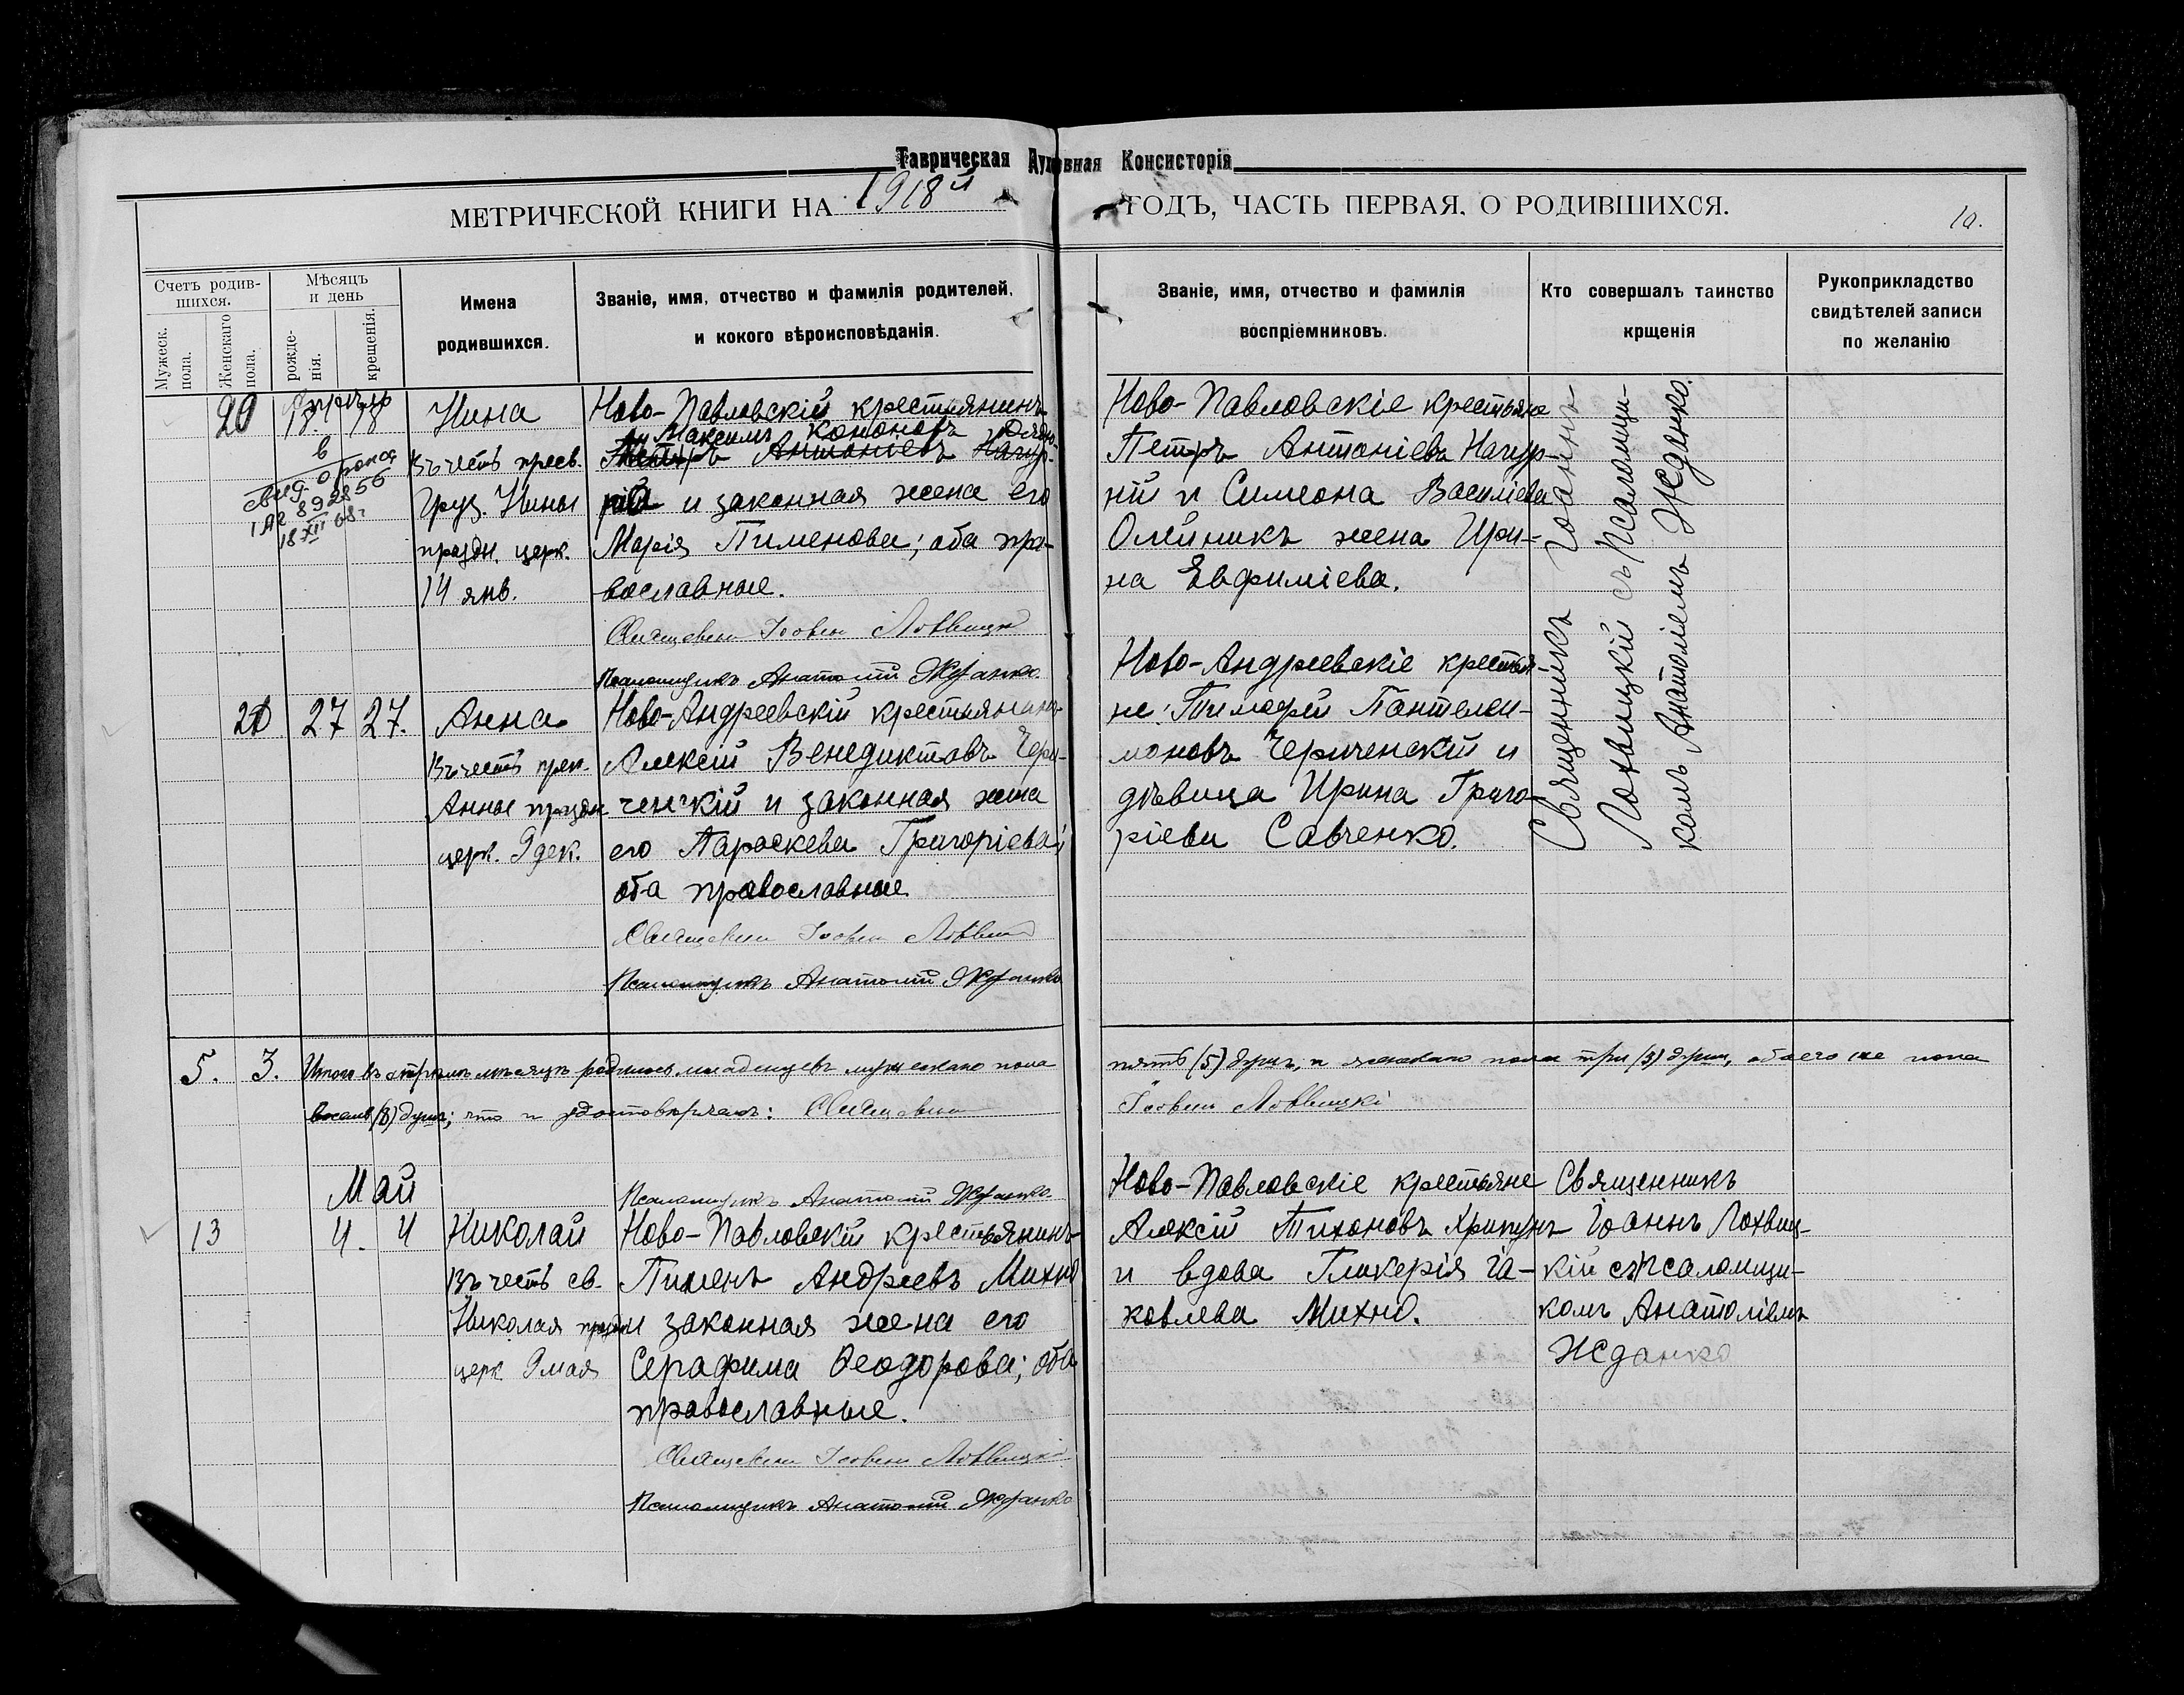 Таврическая Духовная Консисторія
МЕТРИЧЕСКОЙ КНИГИ НА 1918й ГОДЪ, ЧАСТЬ ПЕРВАЯ. О РОДИВШИХСЯ.
10.
Счетъ родив-
шихся.
Мужеск.
пола.
Женскаго
пола.
Мѣсяцъ
и день
рожде-
нія.
крещенія.
Имена
родившихся.
Званіе, имя, отчество и фамилія родителей,
и кокого вѣроисповѣданія.
Званіе, имя, отчество и фамилія
воспріемниковъ.
Кто совершалъ таинство
крщенія
Рукоприкладство
свидѣтелей записи
по желанію
Апрѣль
20 18. 18 Нина
Въ честь
Груз. Нины
праздн. церк.
14 янв.
18 XII 68г
Ново-Павловскій крестьянинъ
Максимъ Кононовъ
Петръ Антоніевъ Нагур-
и законная жена его
Марія Пименова; оба пра-
вославные.
Священникъ Іоаннъ Лохвицкій
Псаломщикъ Анатолій Жданко.
Ново-Павловскіе крестьяне
Петръ Антоніевъ Нагур-
ній и Симеона Василіева
Олейникъ жена Ири-
на Евфиміева.
Священникъ Іоаннъ
Лохвицкій съ Псаломщи-
комъ Анатоліемъ Жданко.
21 27 27. Анна
Въ честь прав.
Анны праздн
церк. 9 дек.
Ново-Андреевскій крестьянинъ
Алексій Венедиктовъ Чери-
ченскій и законная жена
его Параскева Григоріева;
оба православные
Священникъ Іоаннъ Лохвиц
Псаломщикъ Анатолій Жданко
Ново-Андреевскіе крестья-
не: Тимофей Пантелеи-
моновъ Чериченскій и
дѣвица Ирина Григо-
ріева Савченко.
5. 3. Итого въ апрѣлѣ мѣсяцѣ родилось младенцевъ мужескаго пола
пять (5) душъ, и женскаго пола три (3) души, обоего же пола
восемь (8) душъ; что и удостовѣряемъ: Священникъ
Іоаннъ Лохвицкій
Псаломщикъ Анатолій Жданко.
Май
13 4. 4 Николай
Въ честь св.
Николая праздн
церк 9 мая
Ново-Павловскій крестьянинъ
Пименъ Андреевъ Михно
и законная жена его
Серафима Ѳеодорова; оба
православные.
Священникъ Іоаннъ Лохвицкій
Псаломщикъ Анатолій Жданко
Ново-Павловскіе крестьяне
Алексій Тихоновъ Хрипунъ
и вдова Гликерія Іа-
ковлева Михно.
Священникъ
Іоаннъ Лохвиц-
кій съ псаломщи-
комъ Анатоліемъ
Жданко